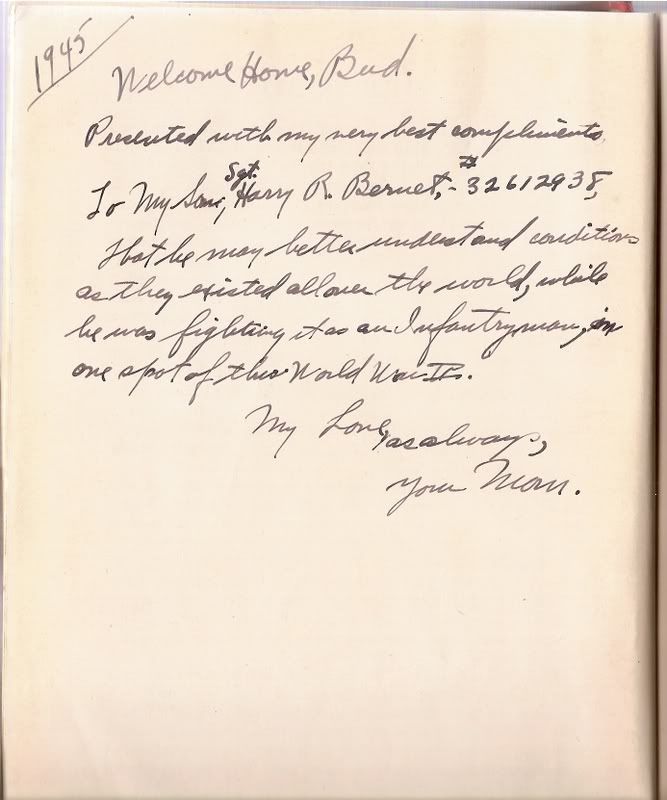 1945
Welcome Home, Bud.
Presented with my very best compliments
Sgt.
To My Son, Harry R. Bernet, - # 32612938,
that he may better understand conditions
as they existed all over the world, while
he was fighting it as an Infantryman, in
one spot of this World War II.
My Love, as always,
your Mom.